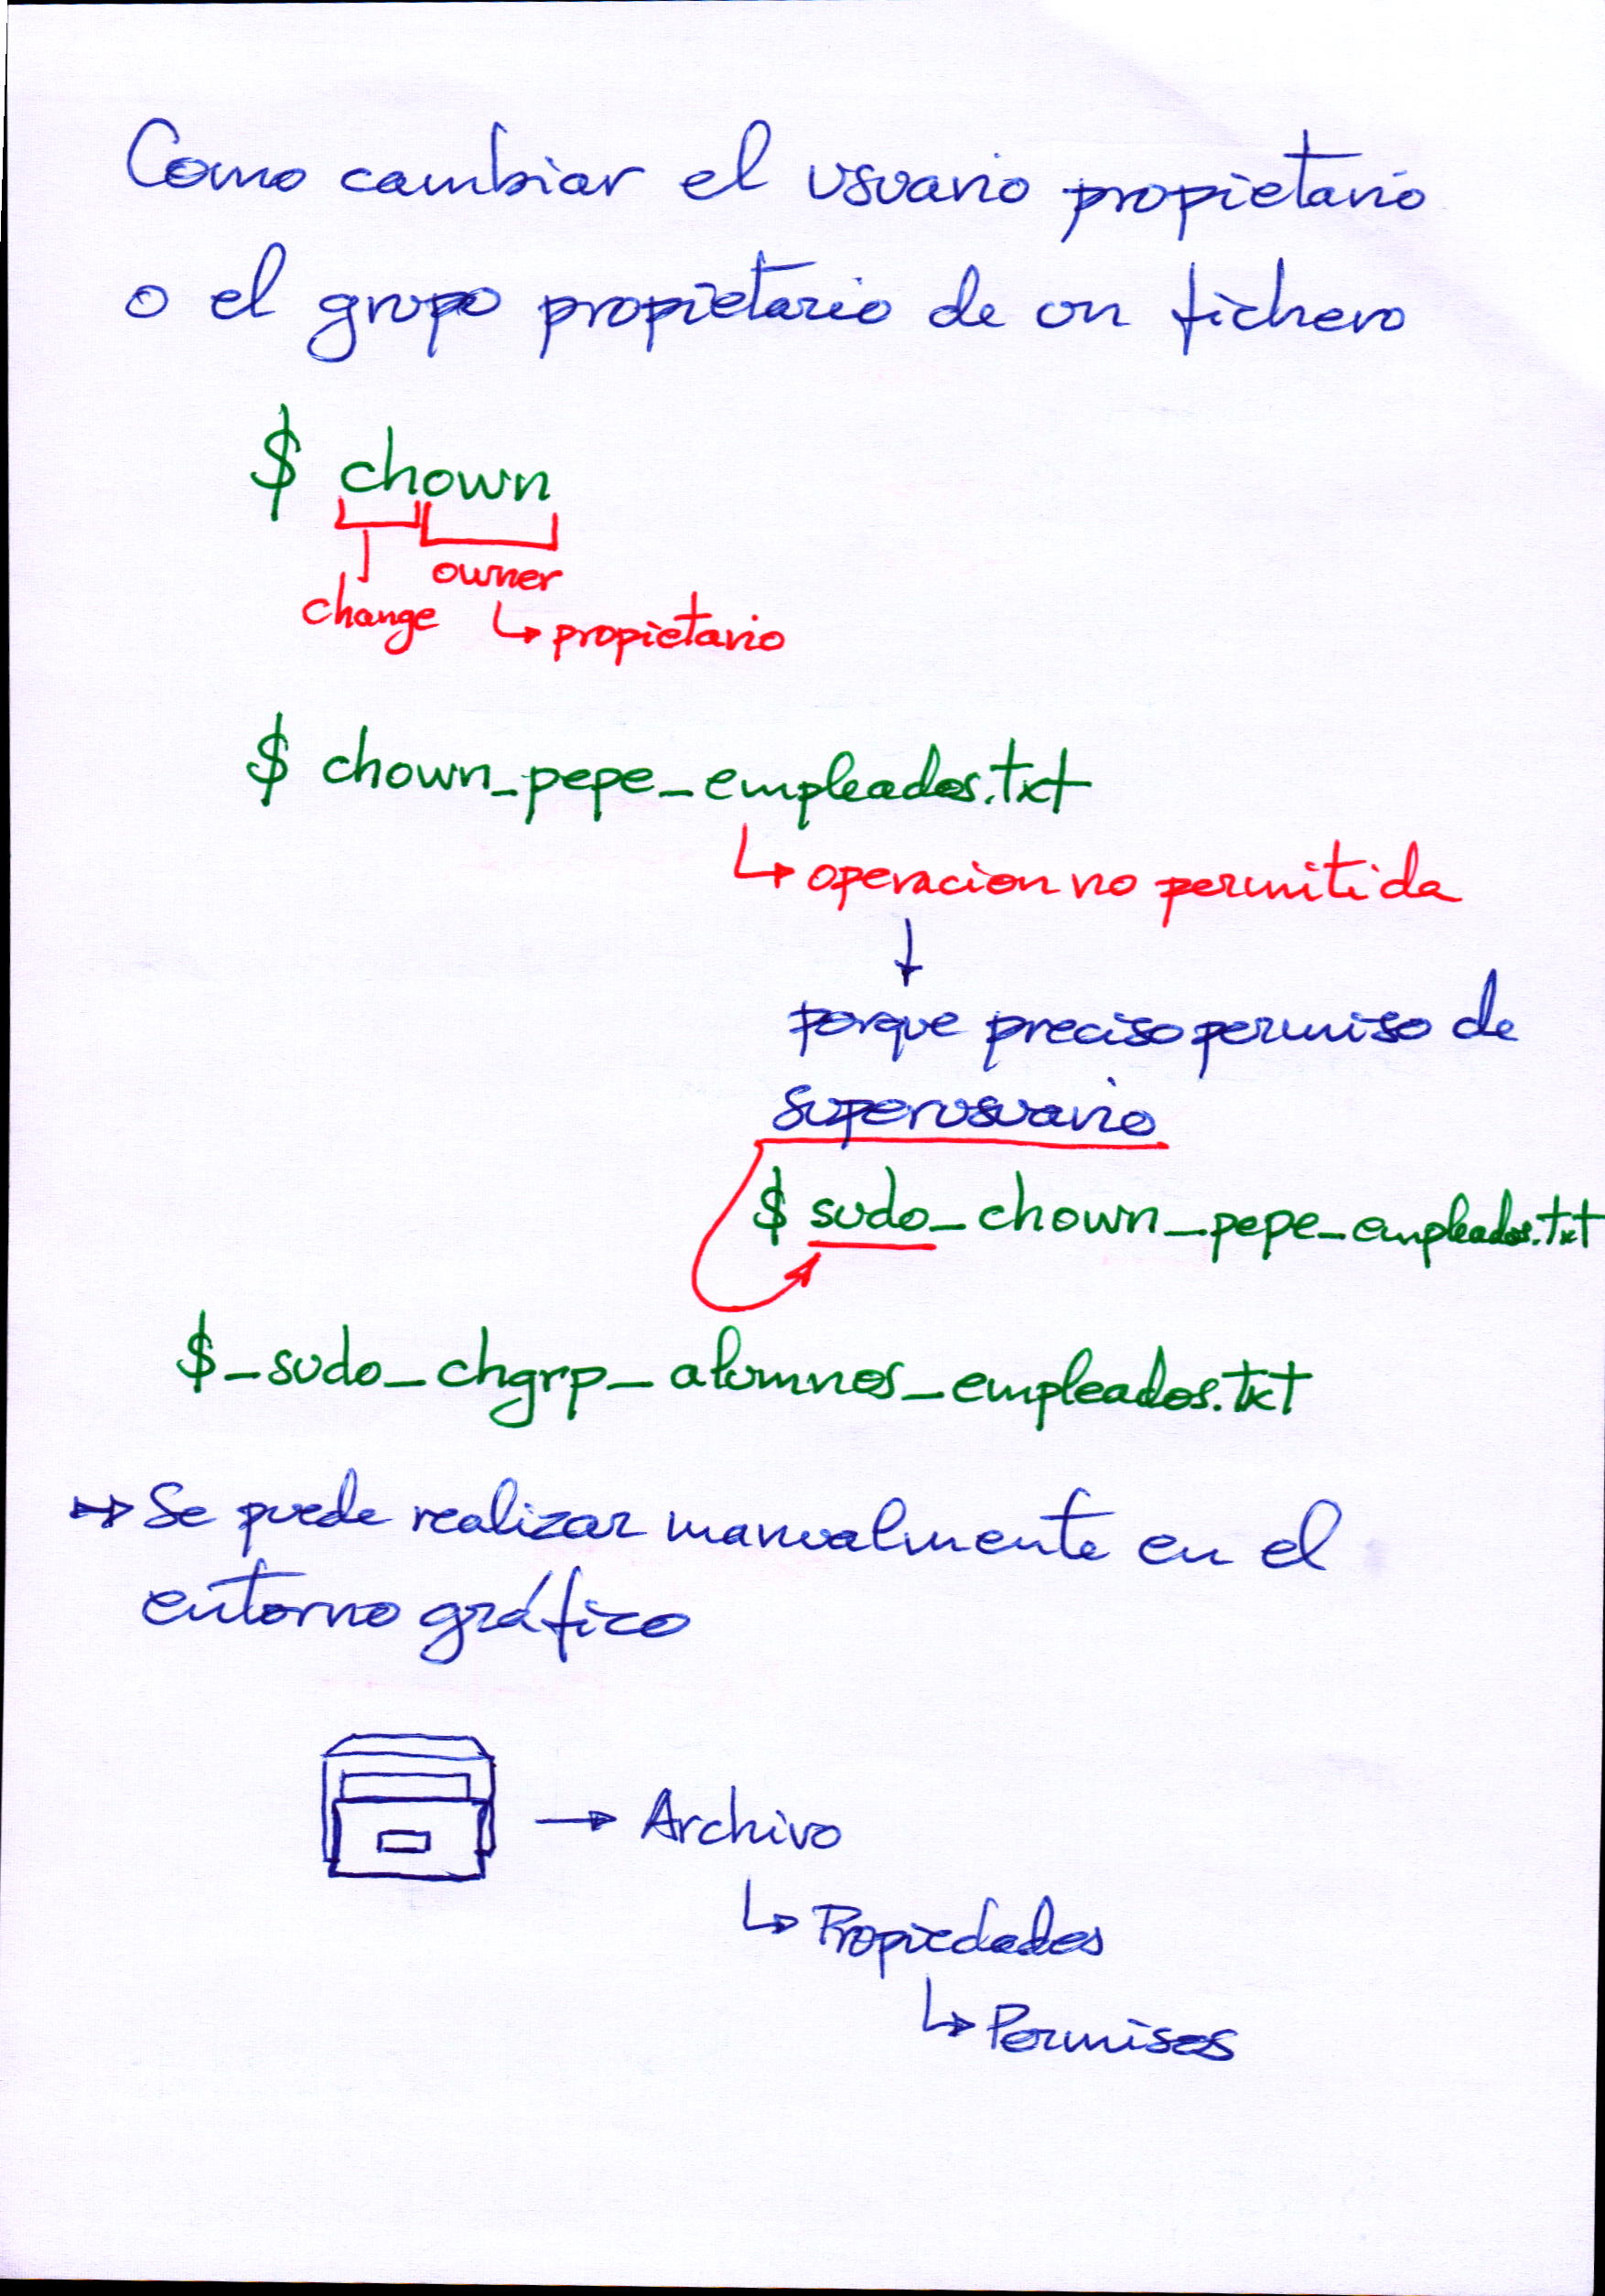 Como cambiar el usuario propietario
o el grupo propietario de un fichero
$ chown
owner
change ↳ propietario
$ chown_pepe_empleados.txt
↳ operacion no permitida
↓
porque preciso permiso de
superusuario
$ sudo_chown_pepe_empleados.txt
$_sudo_chgrp_alumnos_empleados.txt
↦ Se puede realizar manualmente en el
entorno gráfico
→ Archivo
↳ Propiedades
↳ Permisos